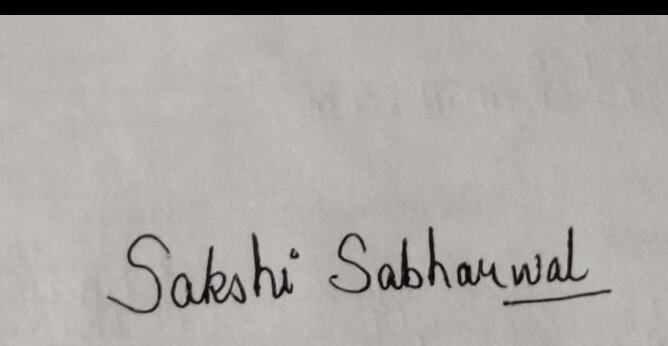 Sakshi Sabharwal